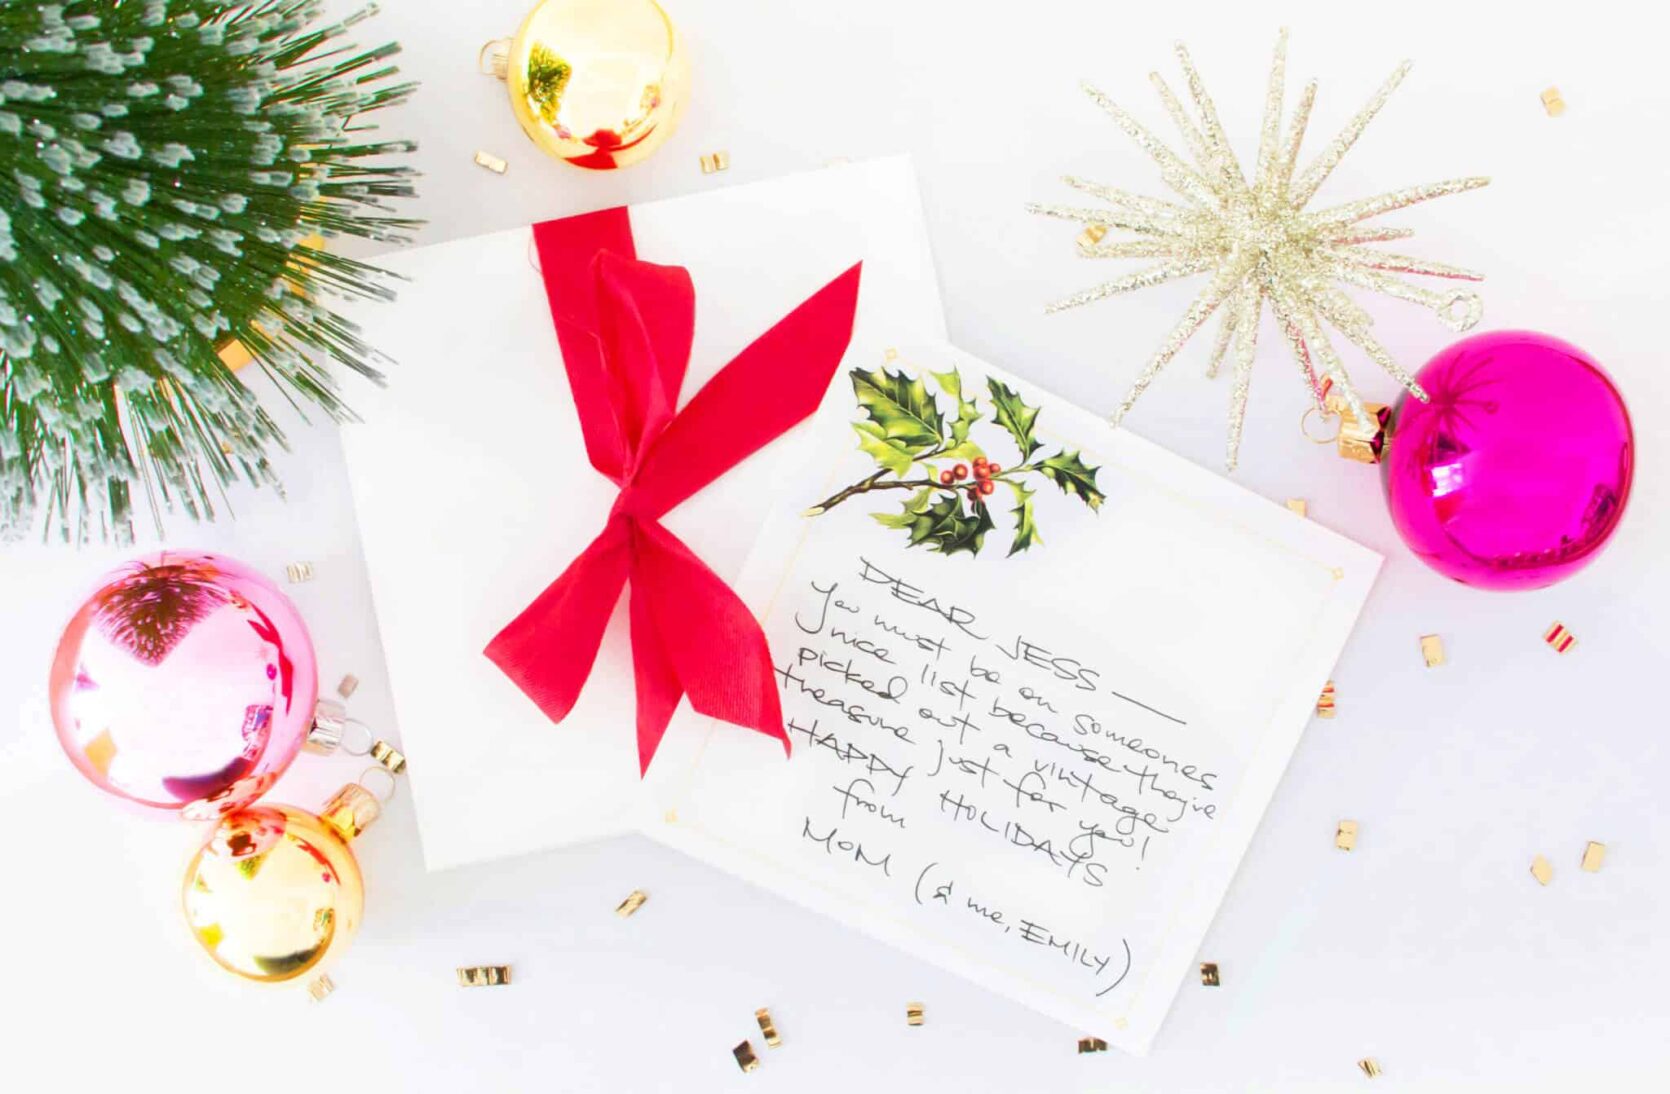 DEAR JESS —
You must be on someones
nice list because they've
picked out a vintage
treasure just for you!
HAPPY HOLIDAYS
from
MOM (& me, EMILY)